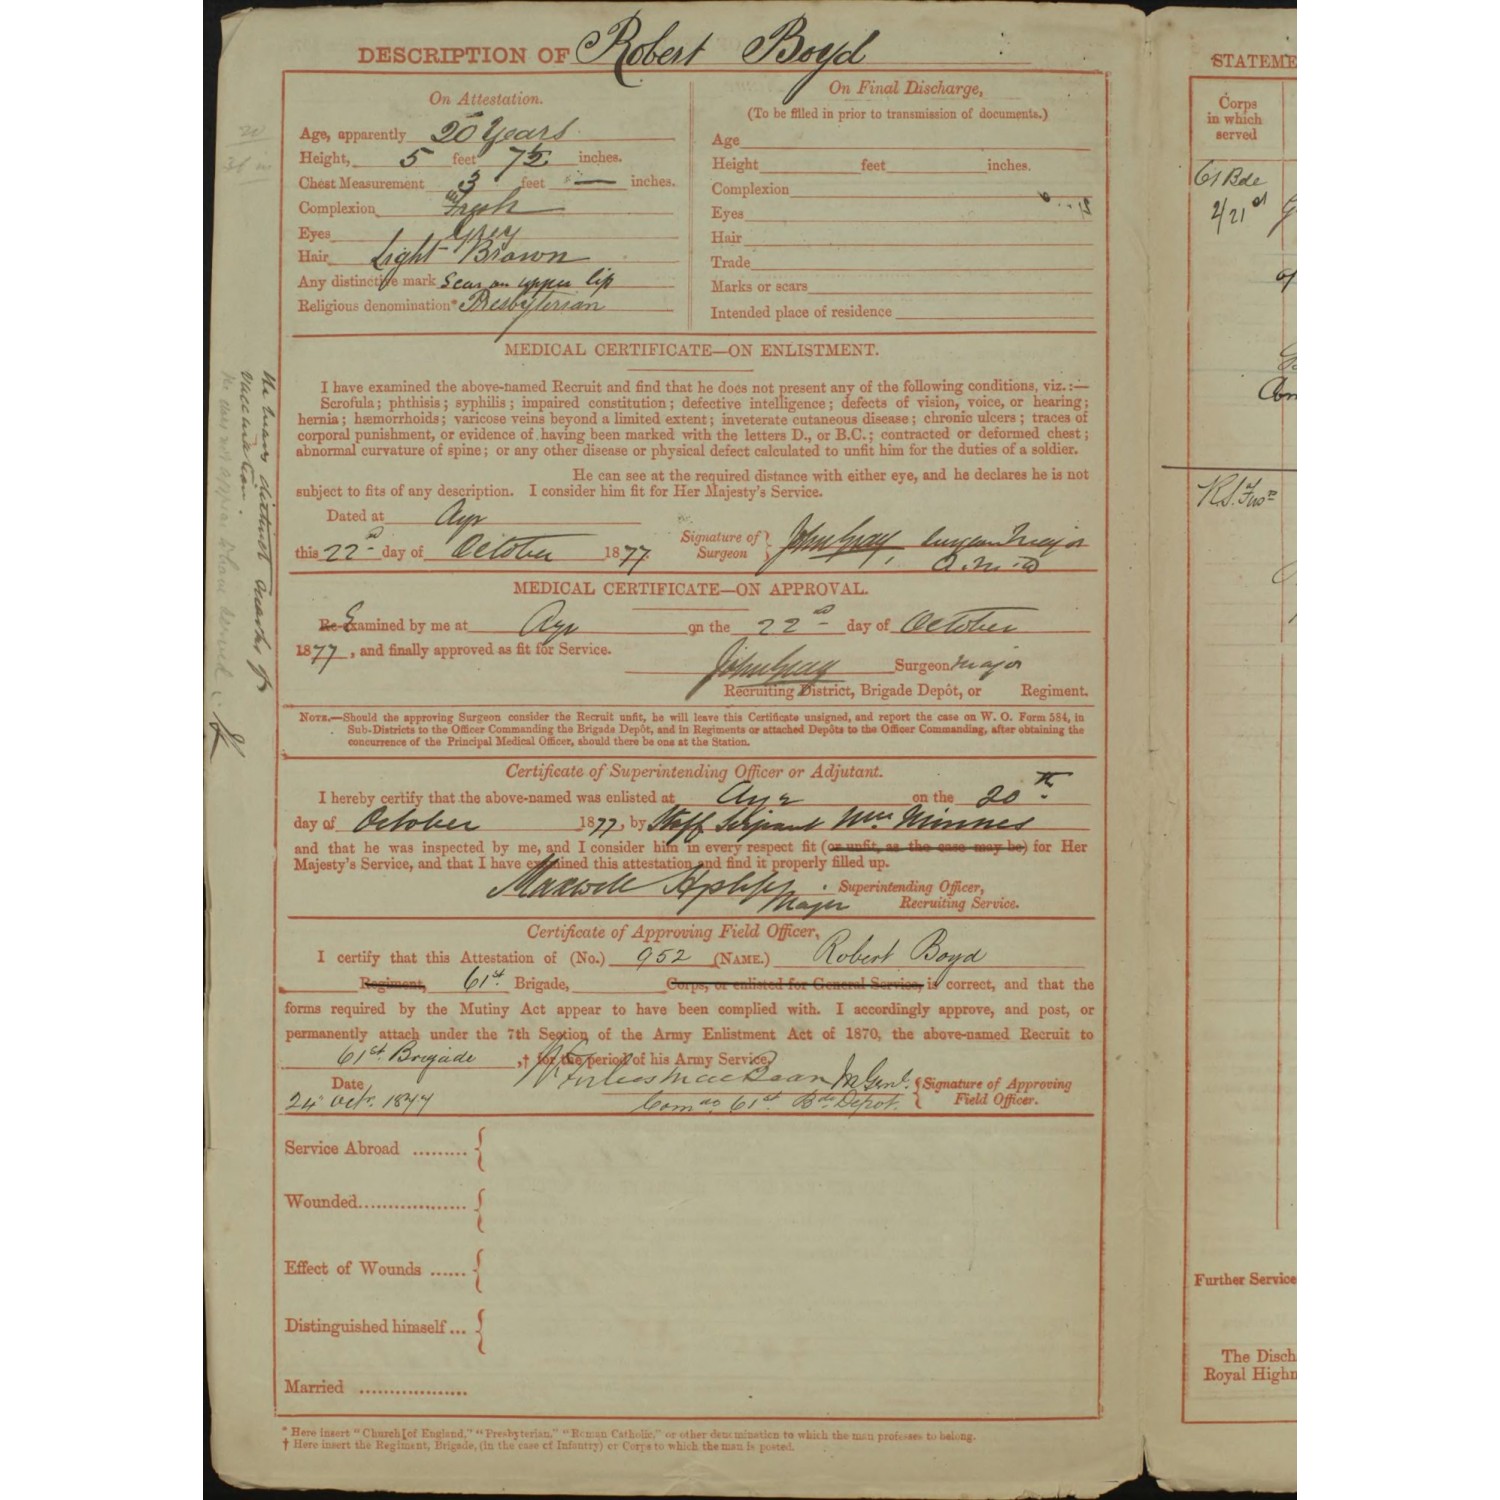 DESCRIPTION OF Robert Boyd
On Attestation.
Age, apparently 20 Years
Height, 5 feet 7½ inches.
Chest Measurement 3 feet — inches.
Complexion Fresh
Eyes Grey
Hair Light Brown
Any distinctive mark Scar on upper lip
Religious denomination* Presbyterian
On Final Discharge,
(To be filled in prior to transmission of documents.)
Age
Height feet inches.
Complexion
Eyes
Hair
Trade
Marks or scars
Intended place of residence
MEDICAL CERTIFICATE—ON ENLISTMENT.
I have examined the above-named Recruit and find that he does not present any of the following conditions, viz.:—
Scrofula; phthisis; syphilis; impaired constitution; defective intelligence; defects of vision, voice, or hearing;
hernia; hæmorrhoids; varicose veins beyond a limited extent; inveterate cutaneous disease; chronic ulcers; traces of
corporal punishment, or evidence of having been marked with the letters D., or B.C.; contracted or deformed chest;
abnormal curvature of spine; or any other disease or physical defect calculated to unfit him for the duties of a soldier.
He can see at the required distance with either eye, and he declares he is not
subject to fits of any description. I consider him fit for Her Majesty's Service.
Dated at Ayr
this 22nd day of October 1877.
Signature of Surgeon } John Gray, Surgeon Major
A.M.D
MEDICAL CERTIFICATE—ON APPROVAL.
Re-Examined by me at Ayr on the 22nd day of October
1877, and finally approved as fit for Service.
John Gray Surgeon Major
Recruiting District, Brigade Depôt, or Regiment.
NOTE.—Should the approving Surgeon consider the Recruit unfit, he will leave this Certificate unsigned, and report the case on W. O. Form 584, in
Sub-Districts to the Officer Commanding the Brigade Depôt, and in Regiments or attached Depôts to the Officer Commanding, after obtaining the
concurrence of the Principal Medical Officer, should there be one at the Station.
Certificate of Superintending Officer or Adjutant.
I hereby certify that the above-named was enlisted at Ayr on the 20th
day of October 1877, by Staff Serjeant Minnes
and that he was inspected by me, and I consider him in every respect fit (or unfit, as the case may be) for Her
Majesty's Service, and that I have examined this attestation and find it properly filled up.
Major
Superintending Officer,
Recruiting Service.
Certificate of Approving Field Officer,
I certify that this Attestation of (No.) 952 (NAME.) Robert Boyd
Regiment, 61st Brigade, Corps, or enlisted for General Service, is correct, and that the
forms required by the Mutiny Act appear to have been complied with. I accordingly approve, and post, or
permanently attach under the 7th Section of the Army Enlistment Act of 1870, the above-named Recruit to
61st Brigade ,† for the period of his Army Service,
Date
24 Octr. 1877
M Genl.
Comdg 61st Bde Depot.
{ Signature of Approving
Field Officer.
Service Abroad .........
Wounded..................
Effect of Wounds ......
Distinguished himself ...
Married ..................
* Here insert "Church of England," "Presbyterian," "Roman Catholic," or other denomination to which the man professes to belong.
† Here insert the Regiment, Brigade, (in the case of Infantry) or Corps to which the man is posted.
He bears distinct marks of
vaccination.
He does not appear to have served
STATEME
Corps
in which
served
61 Bde
2/21st
Further Service
The Disch
Royal Highn